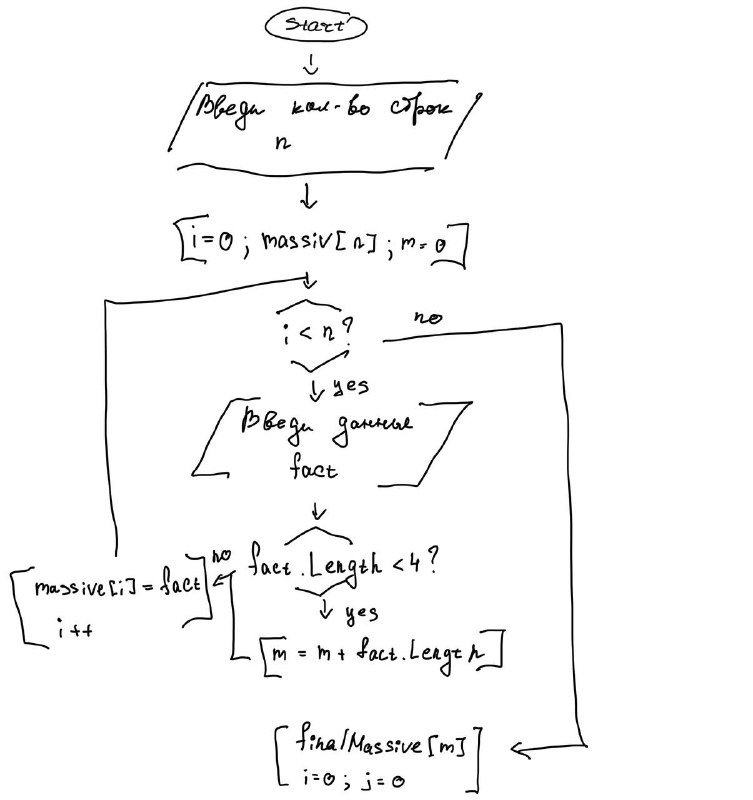 Start
Введи кол-во строк
n
i=0 ; massiv[n] ; m=0
i < n?
no
yes
Введи данные
fact
fact.Length < 4?
no
massive[i] = fact
i++
yes
m = m + fact.Length
finalMassive[m]
i=0 ; j=0